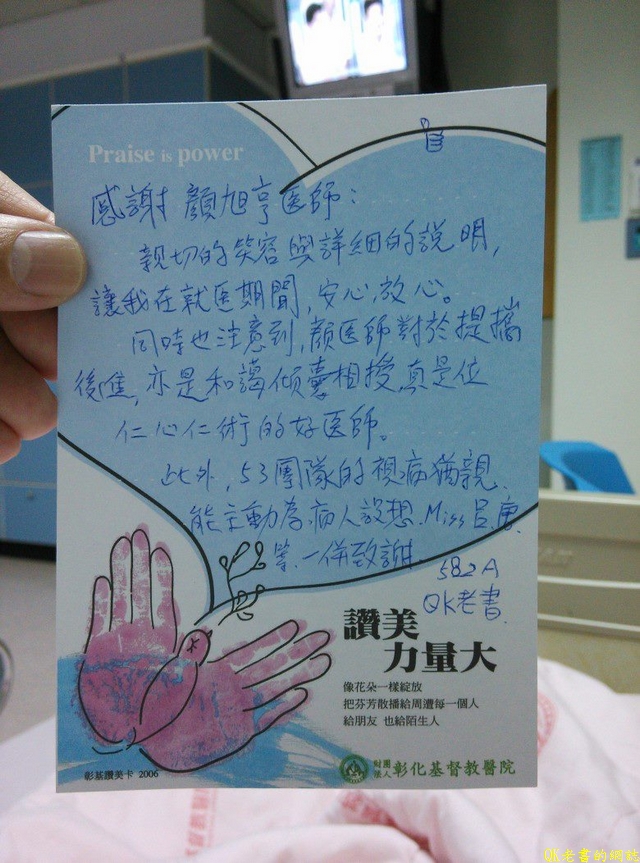 Praise is power
感謝 顏旭亨医師：
親切的笑容與詳細的說明，
讓我在就医期間，安心，放心。
同時也注意到，顏医師對於提攜
後進，亦是和藹傾囊相授，真是位
仁心仁術的好医師。
此外，53團隊的視病猶親、
能主動為病人設想。Miss 呂、唐、
等、一併致謝。
582A
QK老書.
讚美
力量大
像花朵一樣綻放
把芬芳散播給周遭每一個人
給朋友 也給陌生人
彰基讚美卡 2006
財團法人 彰化基督教醫院
QK老書的網誌